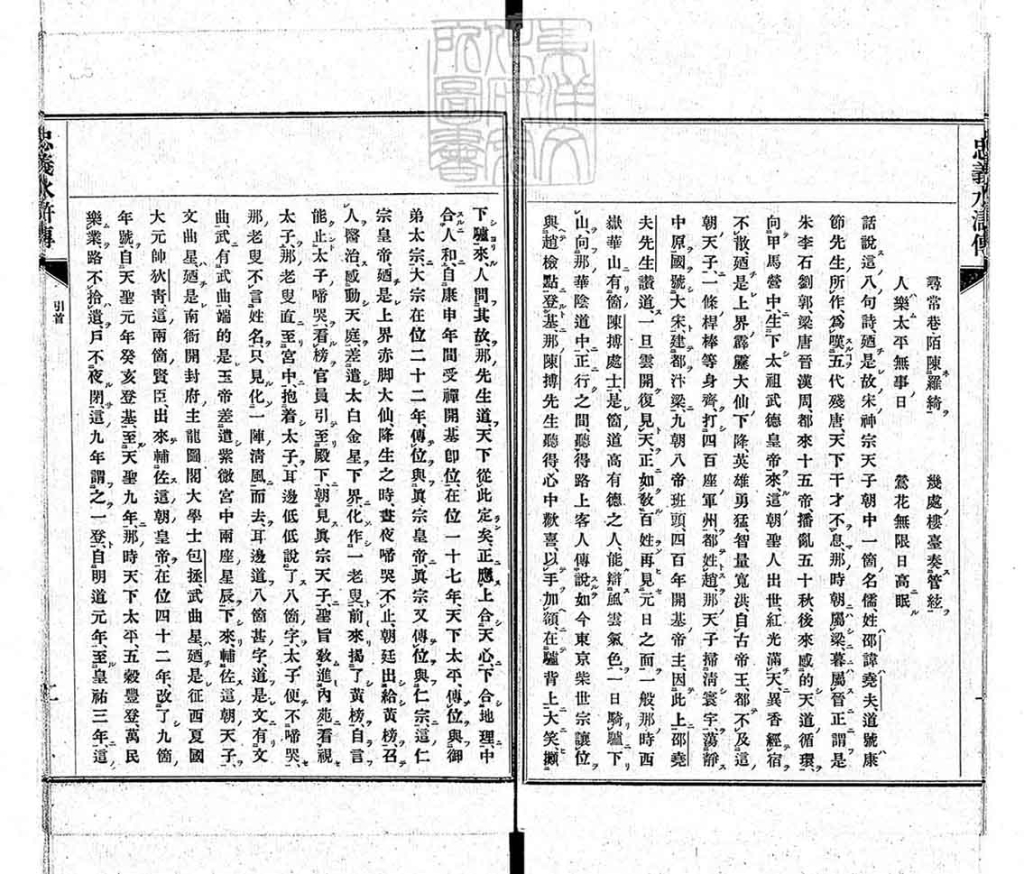 忠義水滸傳
尋常巷陌陳羅綺 幾處樓臺奏管絃
人樂太平無事日 鶯花無限日高眠
話說這八句詩廼是故宋神宗天子朝中一箇名儒姓邵諱堯夫道號康
節先生所作爲嘆五代殘唐天下干戈不息那時朝屬梁暮屬晉正謂是
朱李石劉郭梁唐晉漢周都來十五帝播亂五十秋後來感的天道循環
向甲馬營中生下太祖武德皇帝來這朝聖人出世紅光滿天異香經宿
不散廼是上界霹靂大仙下降英雄勇猛智量寬洪自古帝王都不及這
朝天子一條桿棒等身齊打四百座軍州都姓趙那天子掃清寰宇蕩靜
中原國號大宋建都汴梁九朝八帝班頭四百年開基帝主因此上邵堯
夫先生讚道一旦雲開復見天正如敎百姓再見天日之面一般那時西
嶽華山有箇陳摶處士是箇道高有德之人能辯風雲氣色一日騎驢下
山向那華陰道中正行之間聽得路上客人傳說如今東京柴世宗讓位
與趙檢點登基那陳摶先生聽得心中歡喜以手加額在驢背上大笑攧
下驢來人問其故那先生道天下從此定矣正應上合天心下合地理中
合人和自庚申年間受禪開基卽位在位一十七年天下太平傳位與御
弟太宗太宗在位二十二年傳位與眞宗皇帝眞宗又傳位與仁宗這仁
宗皇帝廼是上界赤脚大仙降生之時晝夜啼哭不止朝廷出給黃榜召
人醫治感動天庭差遣太白金星下界化作一老叟前來揭了黃榜自言
能止太子啼哭看榜官員引至殿下朝見眞宗天子聖旨敎進內苑看視
太子那老叟直至宮中抱着太子耳邊低低說了八箇字太子便不啼哭
那老叟不言姓名只見化一陣淸風而去耳邊道八箇甚字道是文有文
曲武有武曲端的是玉帝差遣紫微宮中兩座星辰下來輔佐這朝天子
文曲星廼是南衙開封府主龍圖閣大學士包拯武曲星廼是征西夏國
大元帥狄靑這兩箇賢臣出來輔佐這朝皇帝在位四十二年改了九箇
年號自天聖元年癸亥登基至天聖九年那時天下太平五穀豐登萬民
樂業路不拾遺戶不夜閉這九年謂之一登自明道元年至皇祐三年這
忠義水滸傳
引首